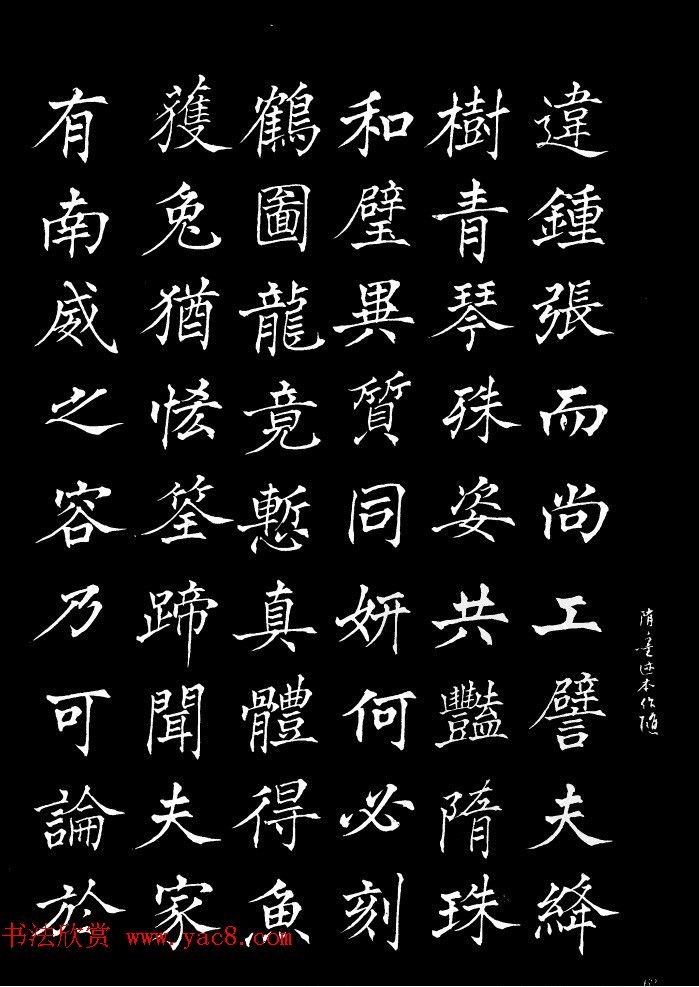 違鍾張而尚工譬夫絳
樹青琴殊姿共豔隋珠
和璧異質同妍何必刻
鶴圖龍竟慙真體得魚
獲兔猶恡筌蹄聞夫家
有南威之容乃可論於
隋墨迹本作隨
书法欣赏 www.yac8.com